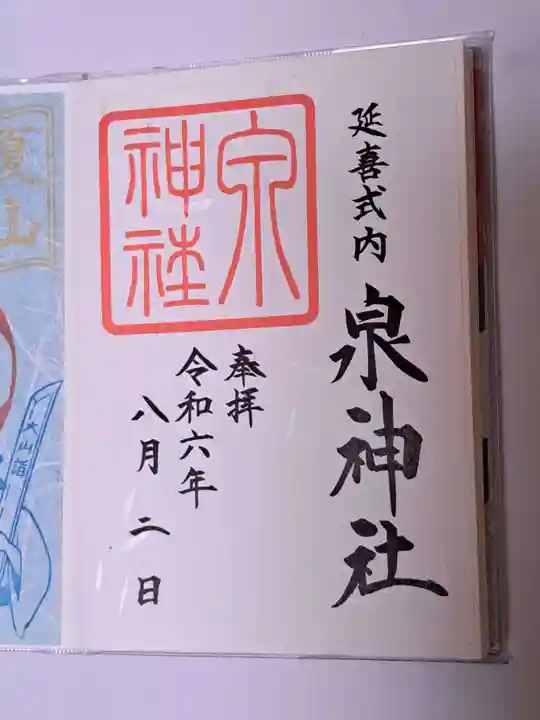 延喜式内 泉神社
泉
神社
奉拝
令和六年
八月二日
夏山
大山詣